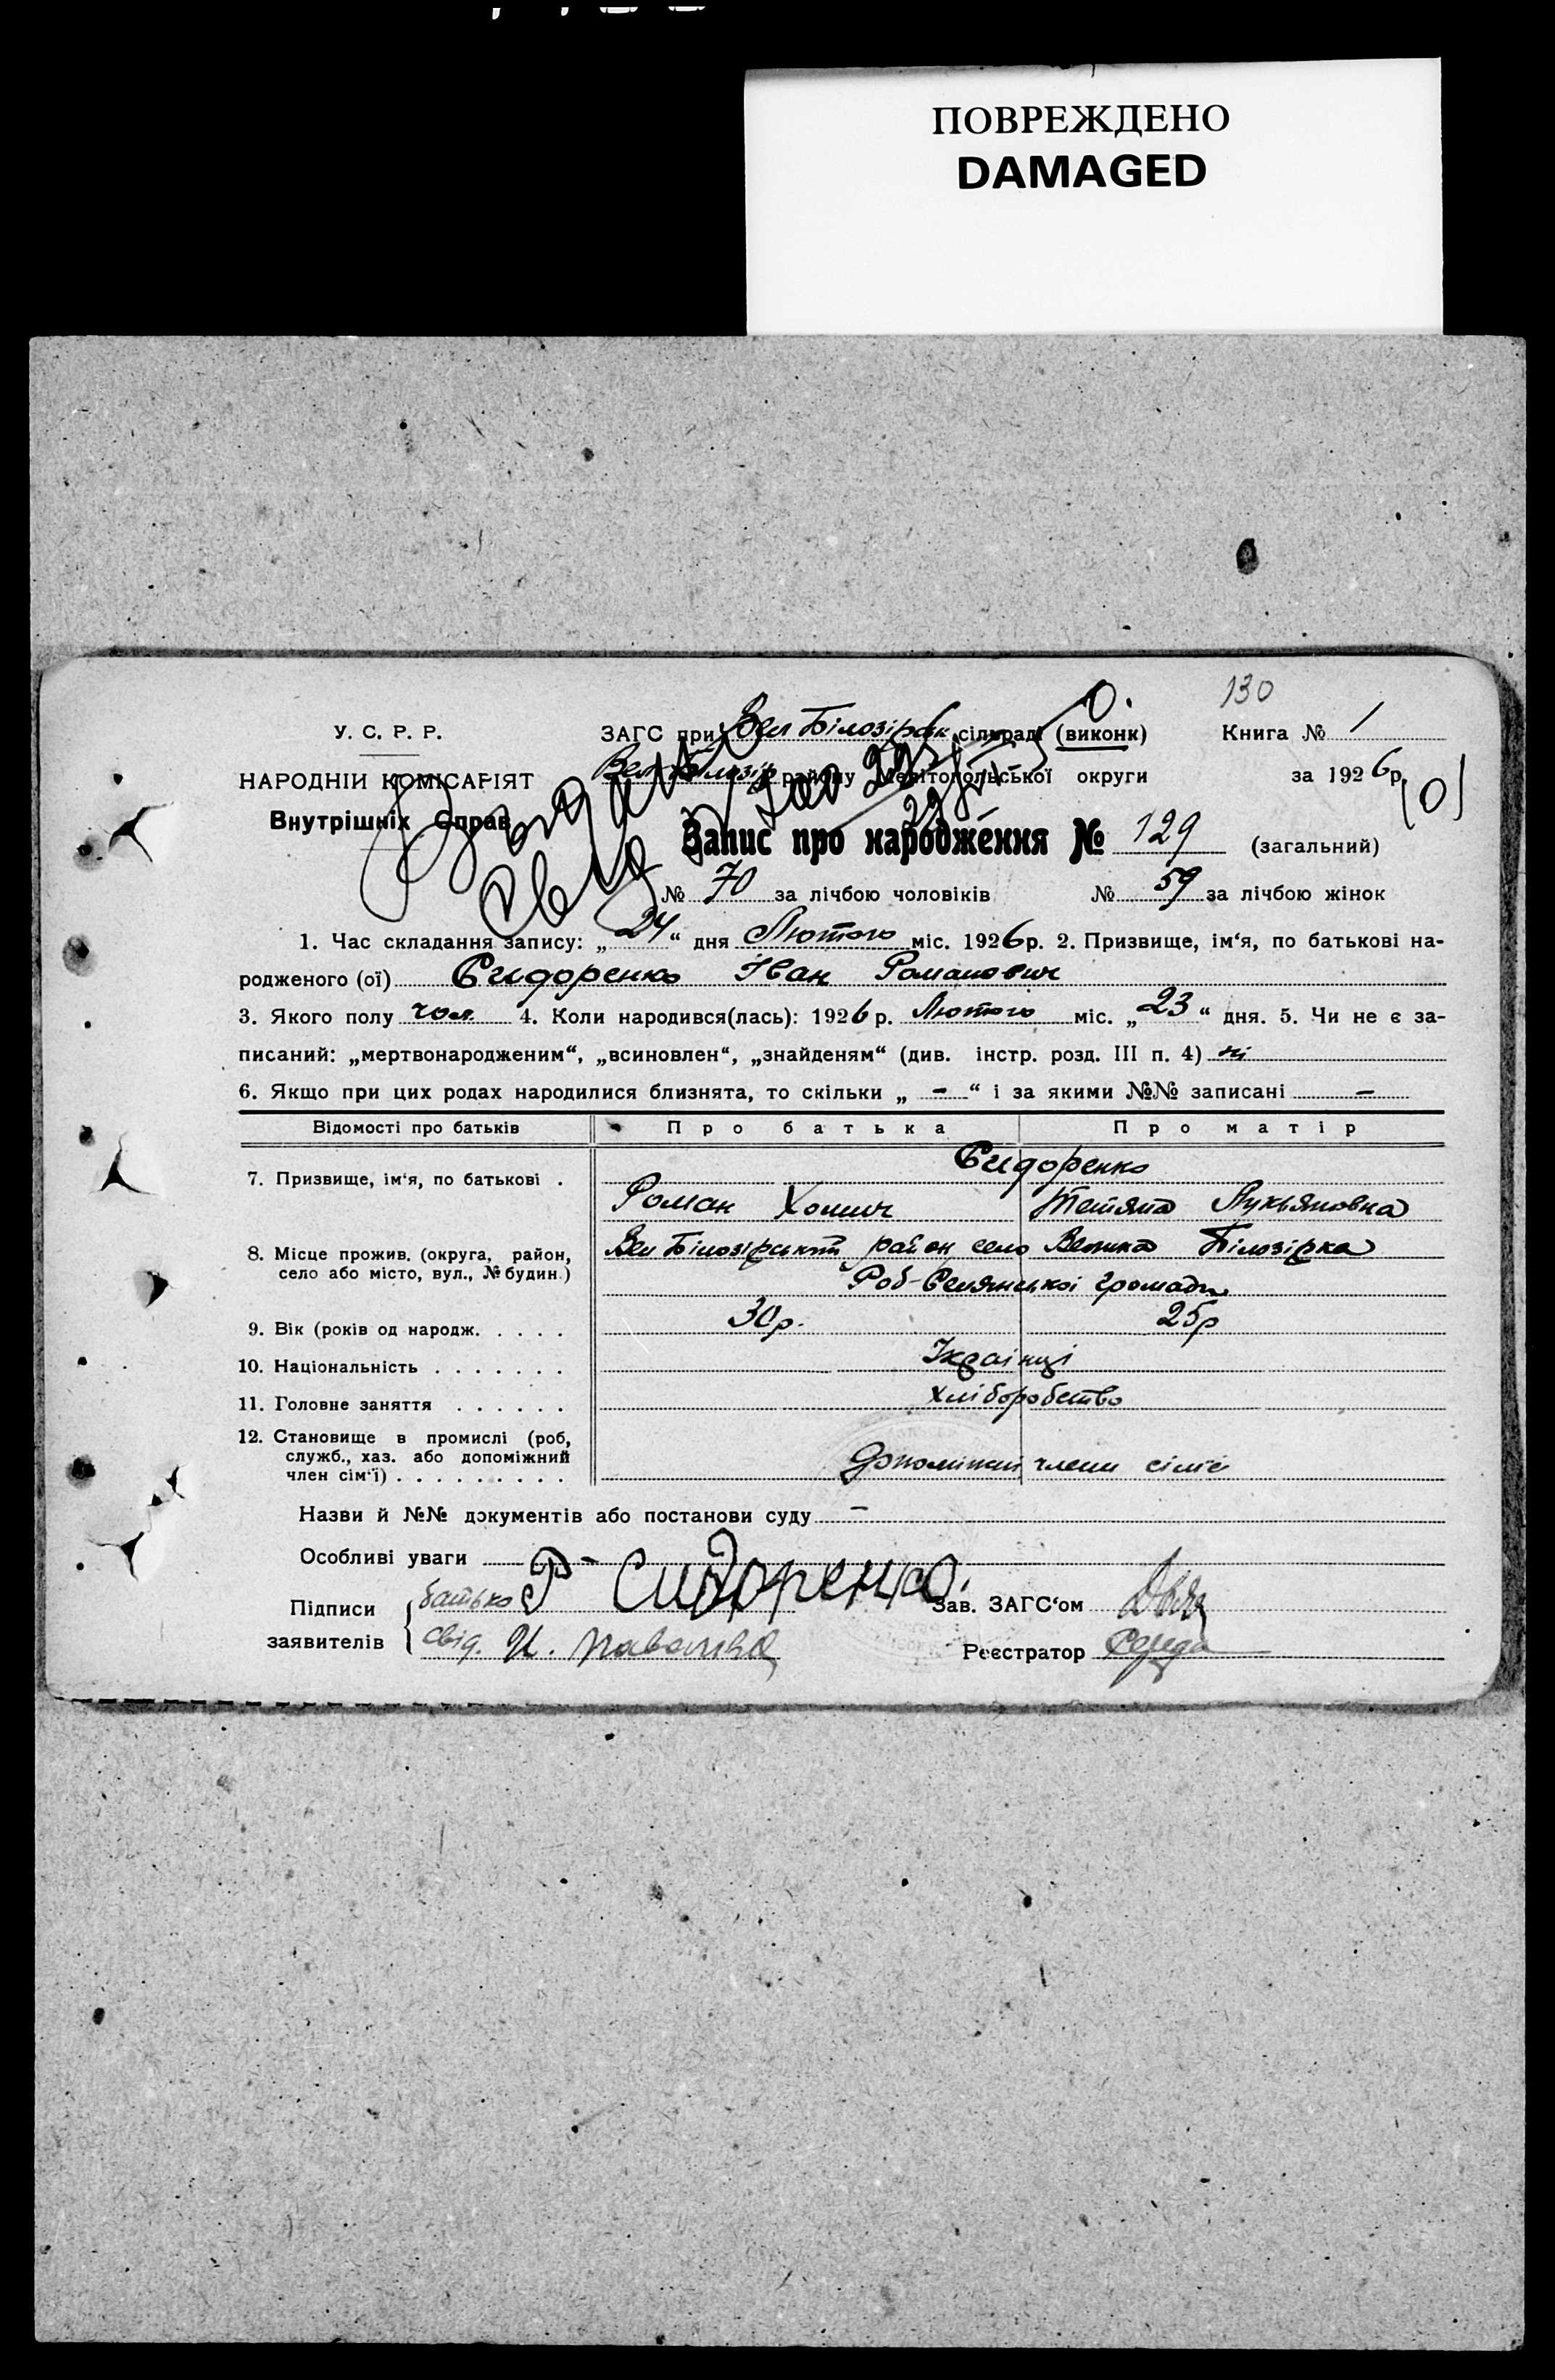 ПОВРЕЖДЕНО
DAMAGED
130
У. С. Р. Р.
ЗАГС при Вел Білозірск сільраді (виконк) Книга № 1
НАРОДНІЙ КОМІСАРІЯТ
Вел Білозір району Мелітопольської округи за 1926 р.
Внутрішніх Справ
Запис про народження № 129 (загальний)
№ 70 за лічбою чоловіків № 59 за лічбою жінок
1. Час складання запису: „24“ дня Лютого міс. 1926 р. 2. Призвище, ім‘я, по батькові на-
родженого (ої) Сидоренко Іван Романович
3. Якого полу чол. 4. Коли народився(лась): 1926 р. Лютого міс. „23“ дня. 5. Чи не є за-
писаний: „мертвонародженим“, „всиновлен“, „знайденям“ (див. інстр. розд. III п. 4) ні
6. Якщо при цих родах народилися близнята, то скільки „ – “ і за якими №№ записані –
Відомості про батьків Про батька Про матір
Сидоренко
7. Призвище, ім‘я, по батькові . Роман Хомич Тетяна Лукьяновна
8. Місце прожив. (округа, район, Вел Білозірський район село Велика Білозірка
село або місто, вул., № будин.) Роб-Селянської громади
9. Вік (років од народж. . . . . 30р. 25р
10. Національність . . . . . . . Українці
11. Головне заняття . . . . . . хліборобство
12. Становище в промислі (роб,
служб., хаз. або допоміжний
член сім‘ї) . . . . . . . . . допоміжни члени сімїе
Назви й №№ документів або постанови суду –
Особливі уваги
Підписи батько Р Сидоренко. Зав. ЗАГС‘ом
заявителів свід. И. Реєстратор Середа